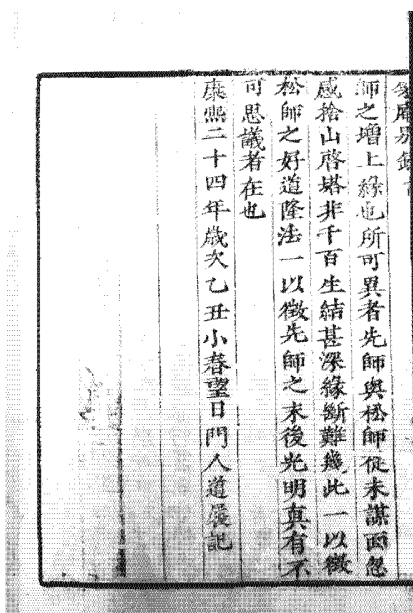 師之增上緣也所可異者先師與松師從未謀面忽
感捨山啓塔非千百生結甚深緣斷難幾此一以徵
松師之好道隆法一以徵先師之末後光明真有不
可思議者在也
康熙二十四年歲次乙丑小春望日門人道嚴記